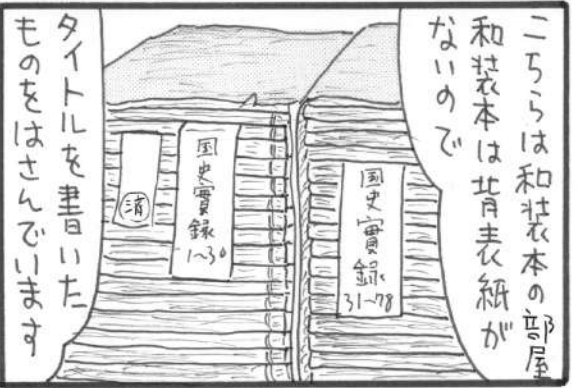 こちらは和装本の部屋
和装本は背表紙が
ないので
国史實録
31~78
国史實録
1~30
済
タイトルを書いた
ものをはさんでいます